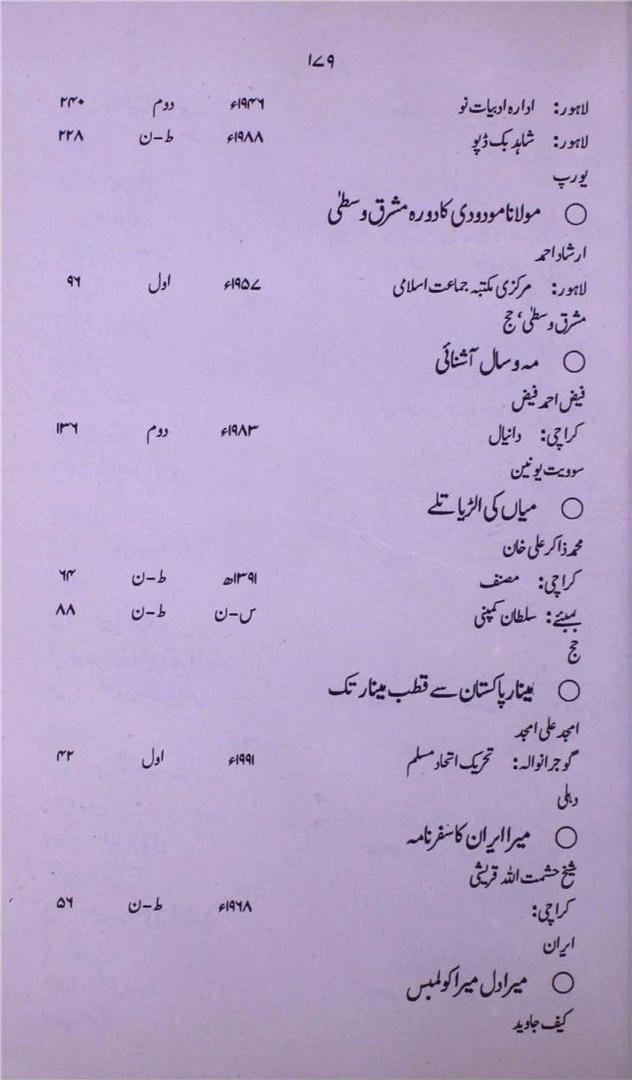 ۱۷۹
لاہور: ادارہ ادبیات نو ۱۹۴۶ء دوم ۲۴۰
لاہور: شاہد بک ڈپو ۱۹۸۸ء ط-ن ۲۲۸
یورپ
○ مولانا مودودی کا دورہ مشرق وسطیٰ
ارشاد احمد
لاہور: مرکزی مکتبہ جماعت اسلامی ۱۹۵۷ء اول ۹۶
مشرق وسطیٰ، حج
○ مہ و سال آشنائی
فیض احمد فیض
کراچی: دانیال ۱۹۸۳ء دوم ۱۳۶
سوویت یونین
○ میاں کی اٹریا تلے
محمد ذاکر علی خان
کراچی: مصنف ۱۳۹۱ھ ط-ن ۶۴
بمبئے: سلطان کمپنی س-ن ط-ن ۸۸
حج
○ مینار پاکستان سے قطب مینار تک
امجد علی امجد
گوجرانوالہ: تحریک اتحاد مسلم ۱۹۹۱ء اول ۴۲
دہلی
○ میرا ایران کا سفرنامہ
شیخ حشمت اللہ قریشی
کراچی: ۱۹۶۸ء ط-ن ۵۶
ایران
○ میرا دل میرا کولمبس
کیف جاوید